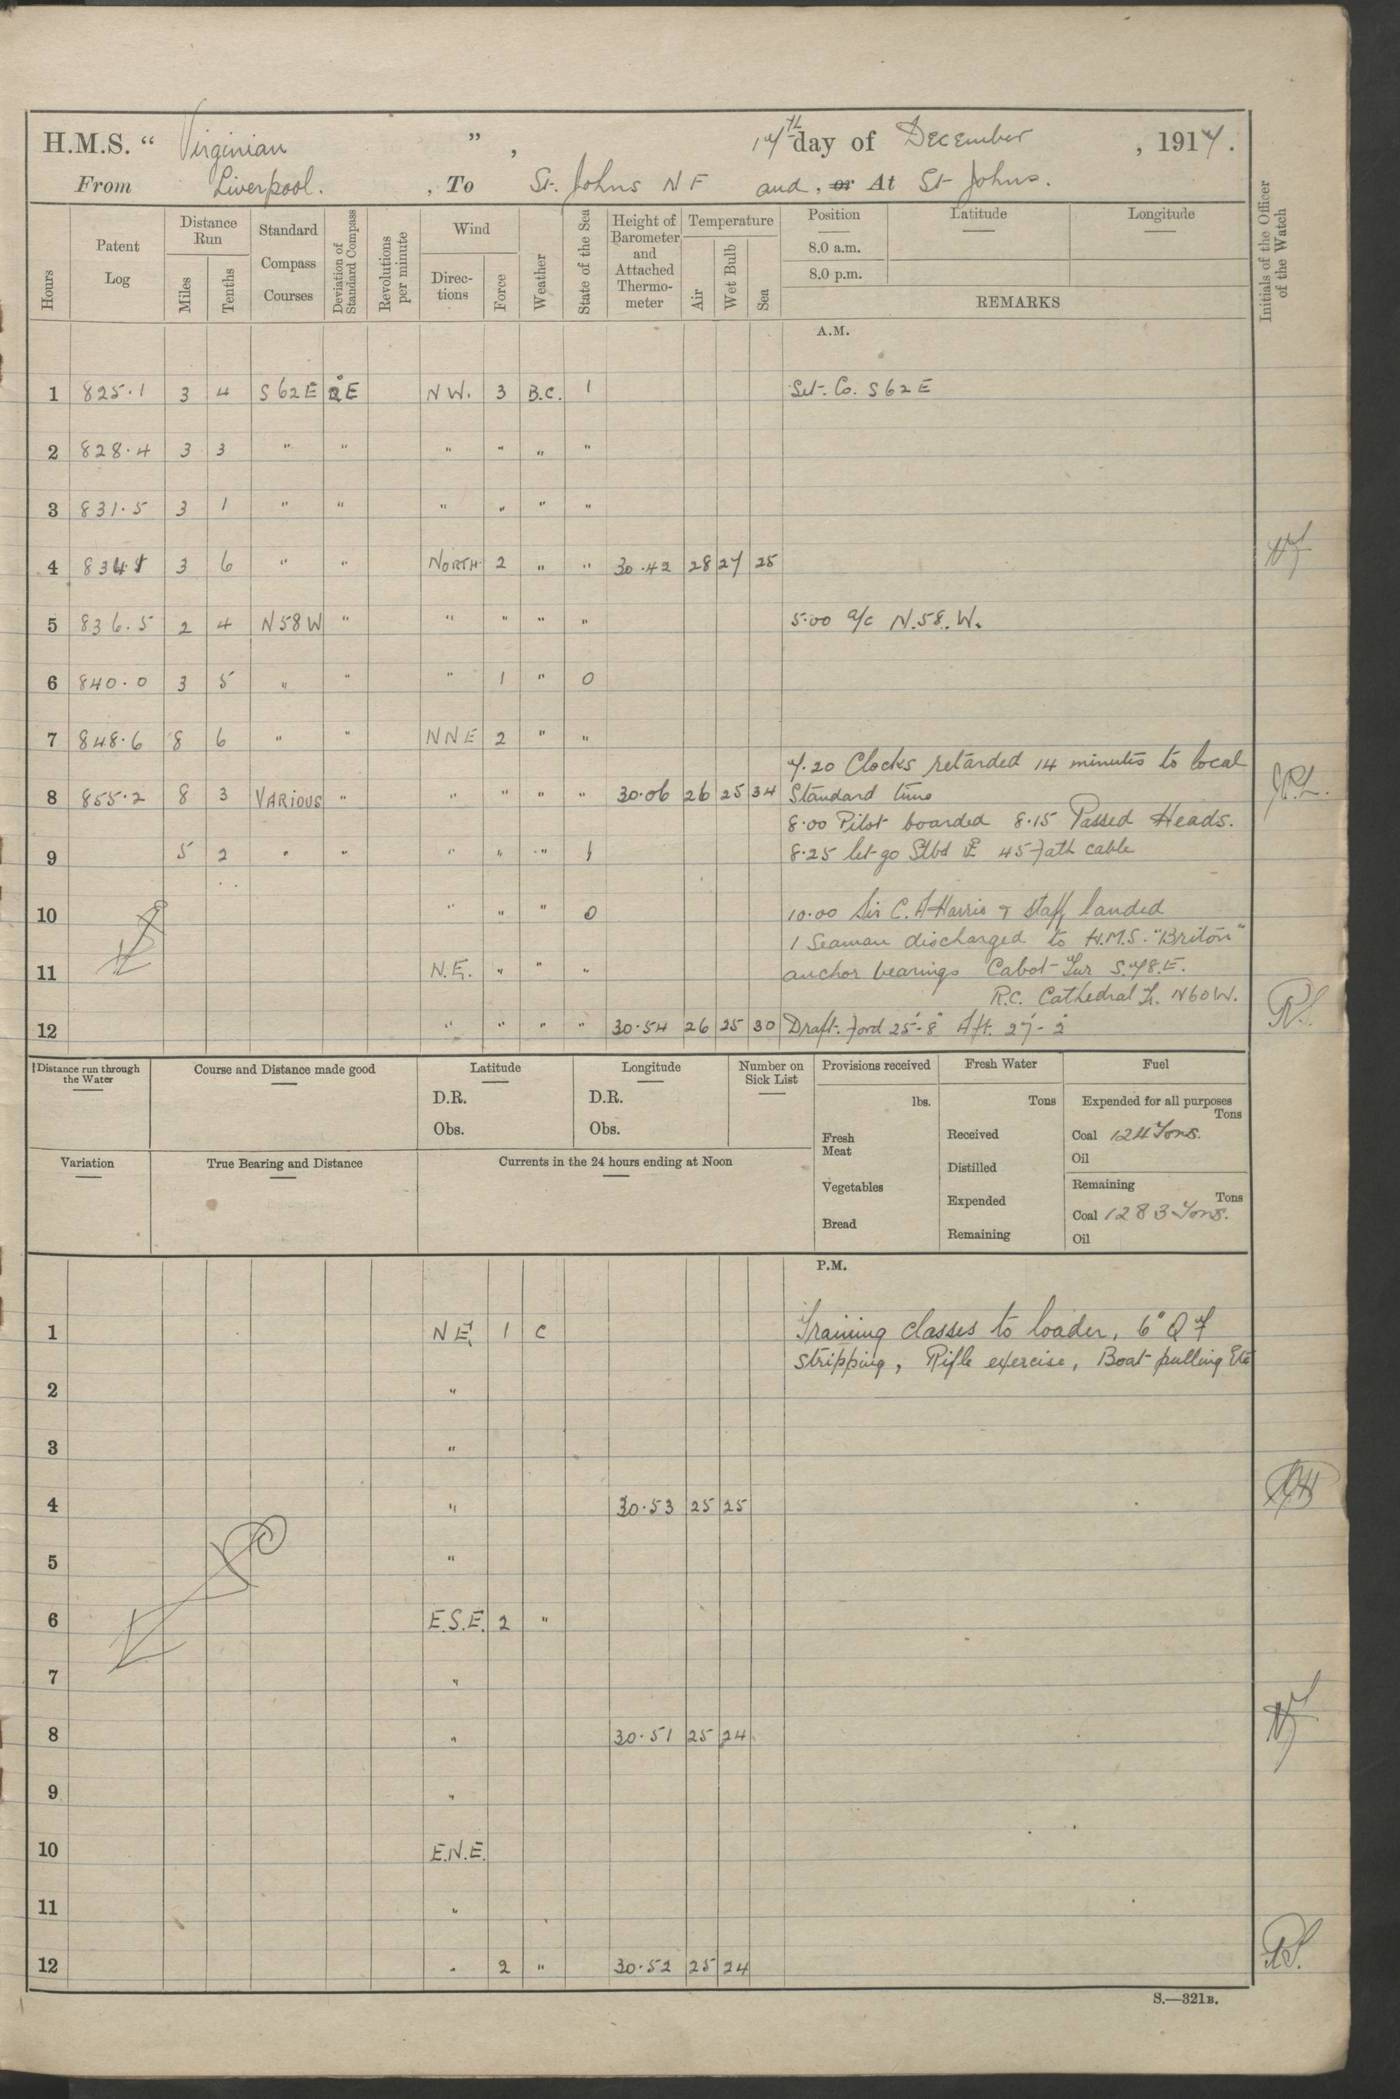 H.M.S. “ Virginian ” , 17th day of December , 1917 .
From Liverpool. , To St. Johns N F and , or At St Johns.
Hours
Patent Log
Distance Run
Miles
Tenths
Standard Compass Courses
Deviation of Standard Compass
Revolutions per minute
Wind
Direc-tions
Force
Weather
State of the Sea
Height of Barometer and Attached Thermo-meter
Temperature
Air
Wet Bulb
Sea
Position
Latitude
Longitude
8.0 a.m.
8.0 p.m.
REMARKS
Initials of the Officer of the Watch
A.M.
1 825.1 3 4 S 62 E 2°E N W. 3 B.C. 1 Set. Co. S 62 E
2 828.4 3 3 " " " " " "
3 831.5 3 1 " " " " " "
4 3 6 " " NORTH 2 " " 30.42 28 27 25
5 836.5 2 4 N 58 W " " " " " 5.00 a/c N.58.W.
6 840.0 3 5 " " " 1 " 0
7 848.6 8 6 " " N N E 2 " "
7.20 Clocks retarded 14 minutes to local
8 855.2 8 3 VARIOUS " " " " " 30.06 26 25 34 Standard time
8.00 Pilot boarded 8.15 Passed Heads.
9 5 2 " " " " " 1 8.25 let go Stbd 45 Fath cable
10 " " " 0 10.00 Sir C. A Harris & Staff landed
1 Seaman discharged to H.M.S. "Briton"
11 N.E. " " " anchor bearings Cabot S.78.E.
R.C. Cathedral N60W.
12 " " " " 30.54 26 25 30 Draft. Ford 25'-8" Aft. 27'-2"
Distance run through the Water
Course and Distance made good
Latitude
D.R.
Obs.
Longitude
D.R.
Obs.
Number on Sick List
Provisions received
lbs.
Fresh Meat
Vegetables
Bread
Fresh Water
Tons
Received
Distilled
Expended
Remaining
Fuel
Expended for all purposes
Tons
Coal 124 Tons.
Oil
Remaining
Tons
Coal 1283 Tons.
Oil
Variation
True Bearing and Distance
Currents in the 24 hours ending at Noon
P.M.
1 N E. 1 C Training classes to loader, 6" Q F
stripping, Rifle exercise, Boat pulling Etc
2 "
3 "
4 " 30.53 25 25
5 "
6 E.S.E. 2 "
7 "
8 " 30.51 25 24
9 "
10 E.N.E.
11 "
12 " 2 " 30.52 25 24
S.—321B.